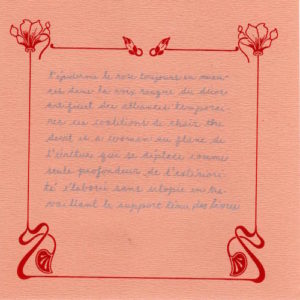 l'épiderme le rose toujours en nuan-
ces dans la voix rauque du décor
artificiel des attentes tempora-
res ces coalitions de chair the
devil is a woman au flanc de
l'écriture que se déplace comme
seule profondeur de l'extériori-
té s'élabore sans utopie en tra-
vaillant le support ténu des lèvres